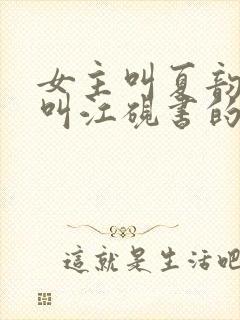 女主叫夏韵
叫江砚書的
這就是生活吧